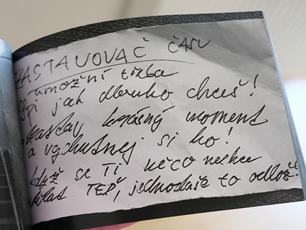 ZASTAVOVAČ ČASU
umožní ti třeba
spi jak dlouho chceš!
krásný moment
a vychutnej si ho!
když se Ti něco nechce
dělat TEĎ, jednoduše to odlož!